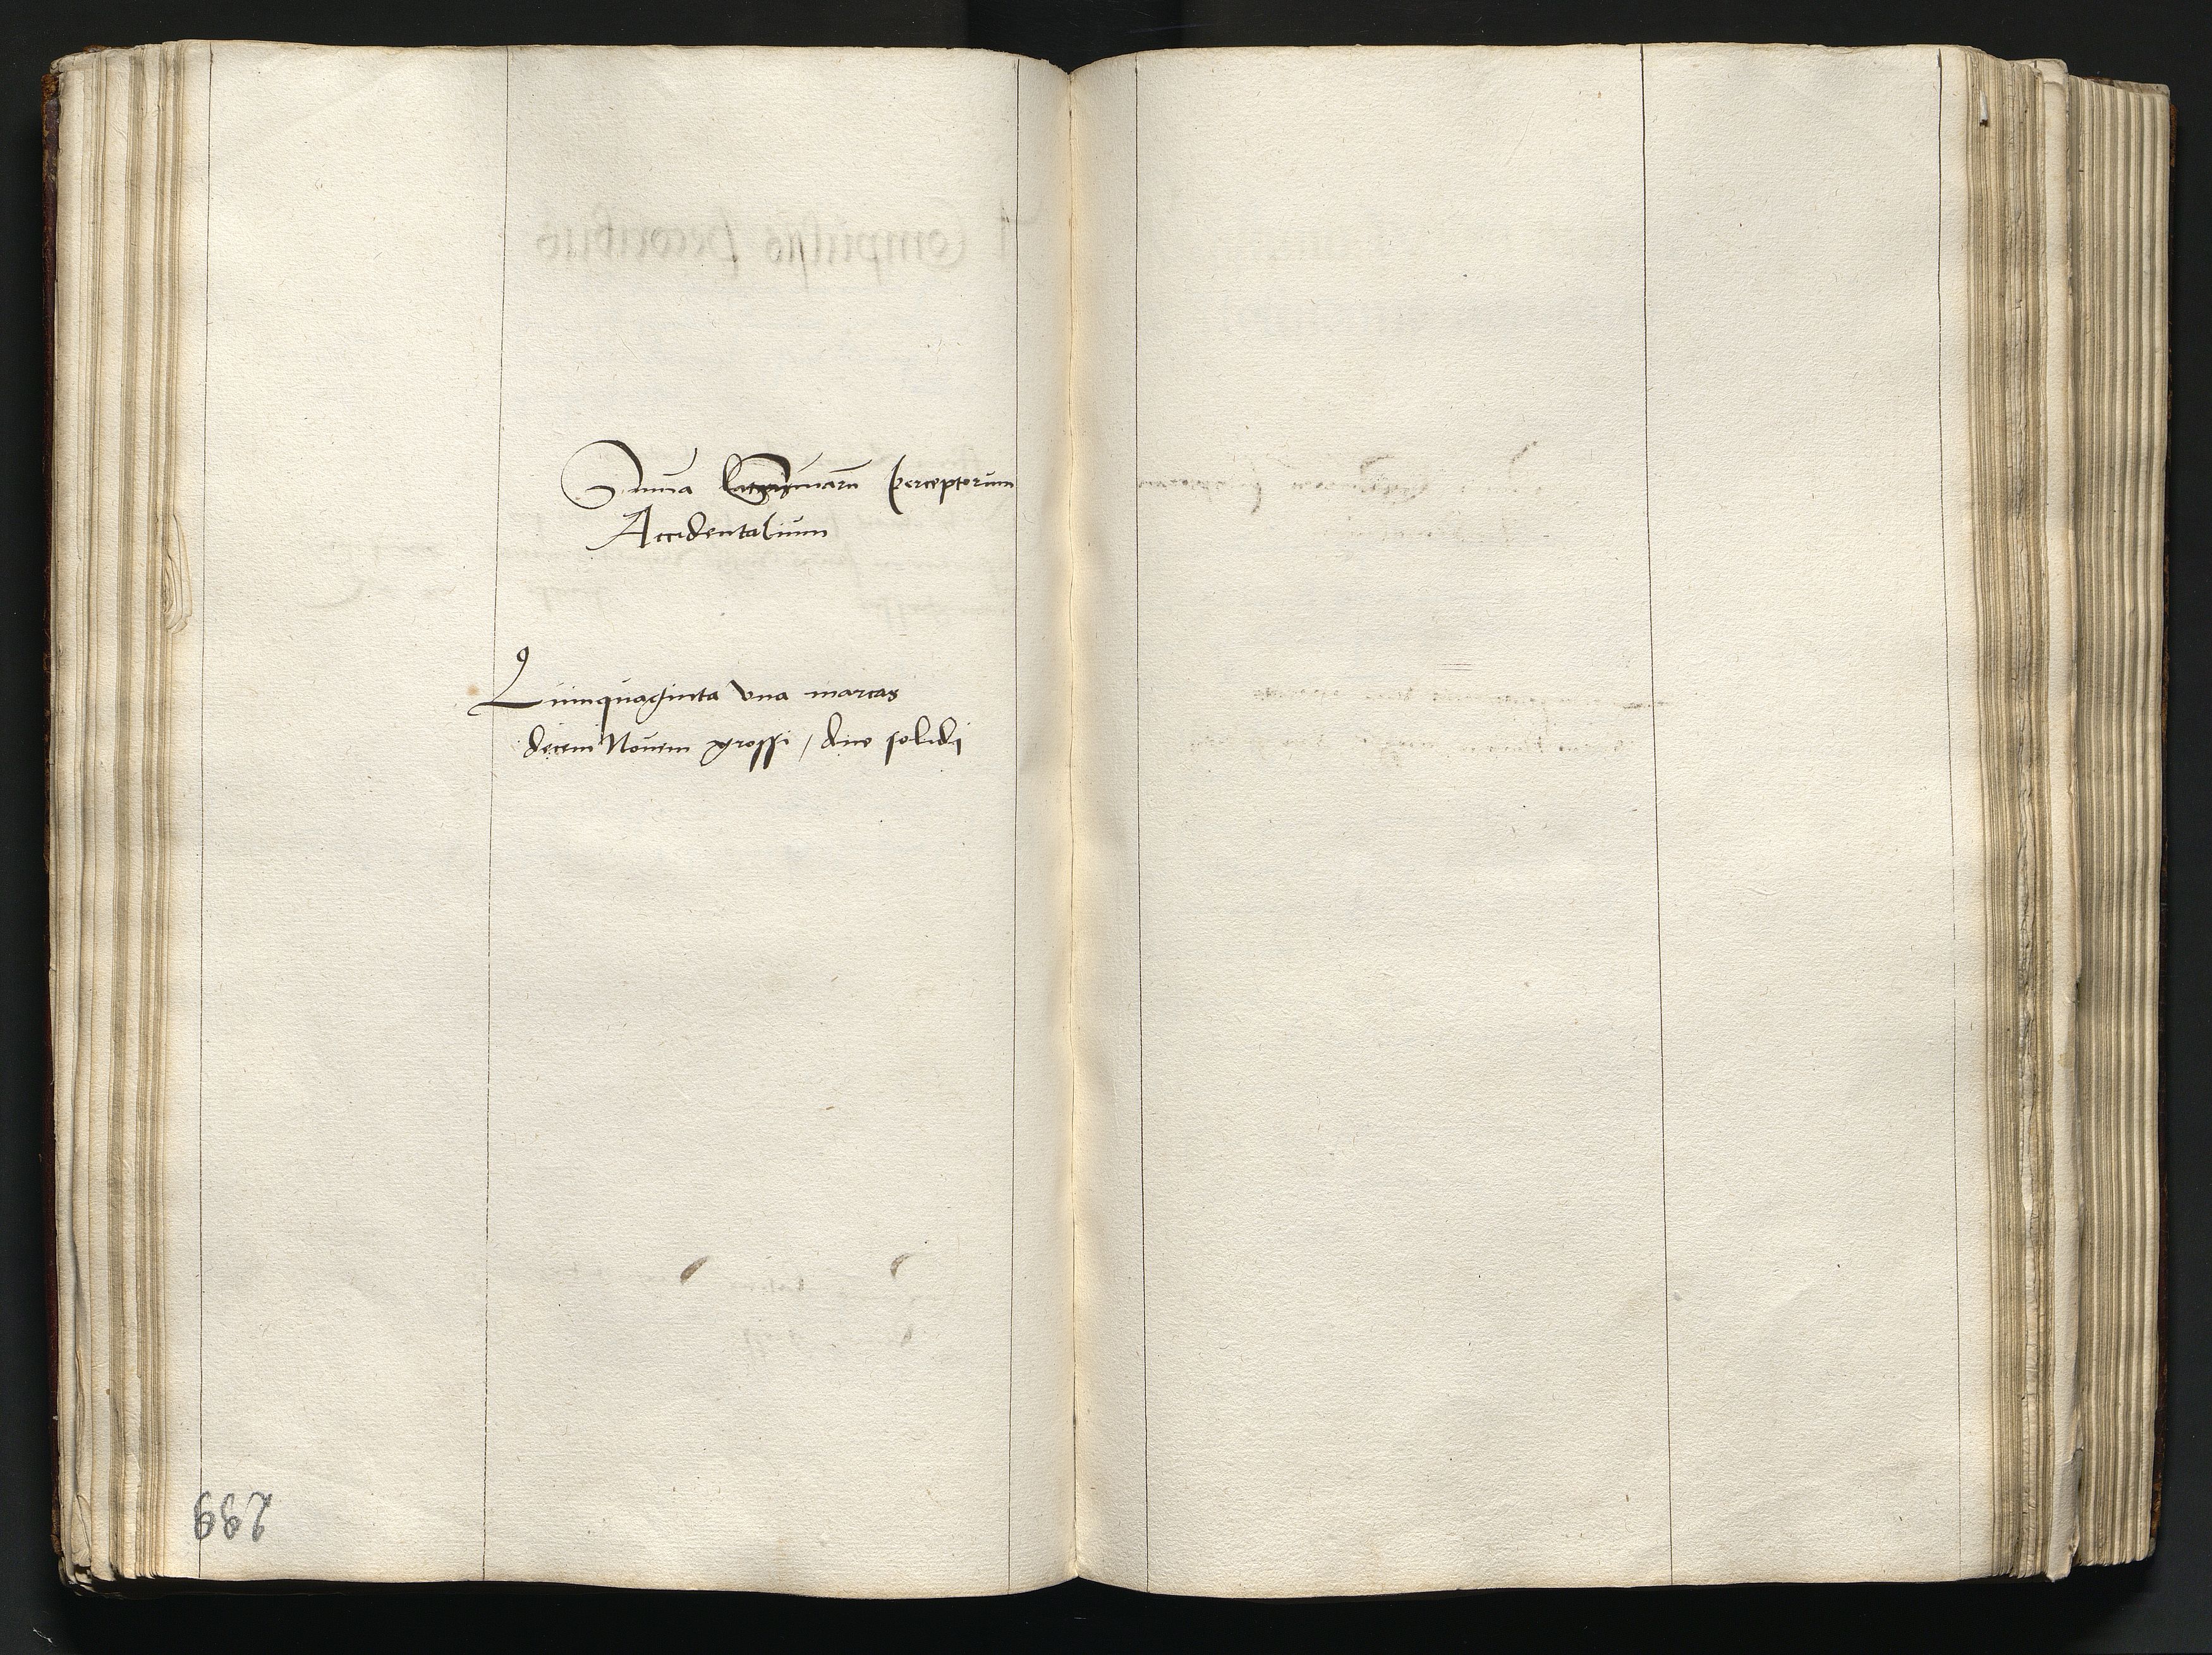 Suma perceptorum
Accidentalium
Quinquaginta vna marcas
decem Novem grossi / duo solidi
239